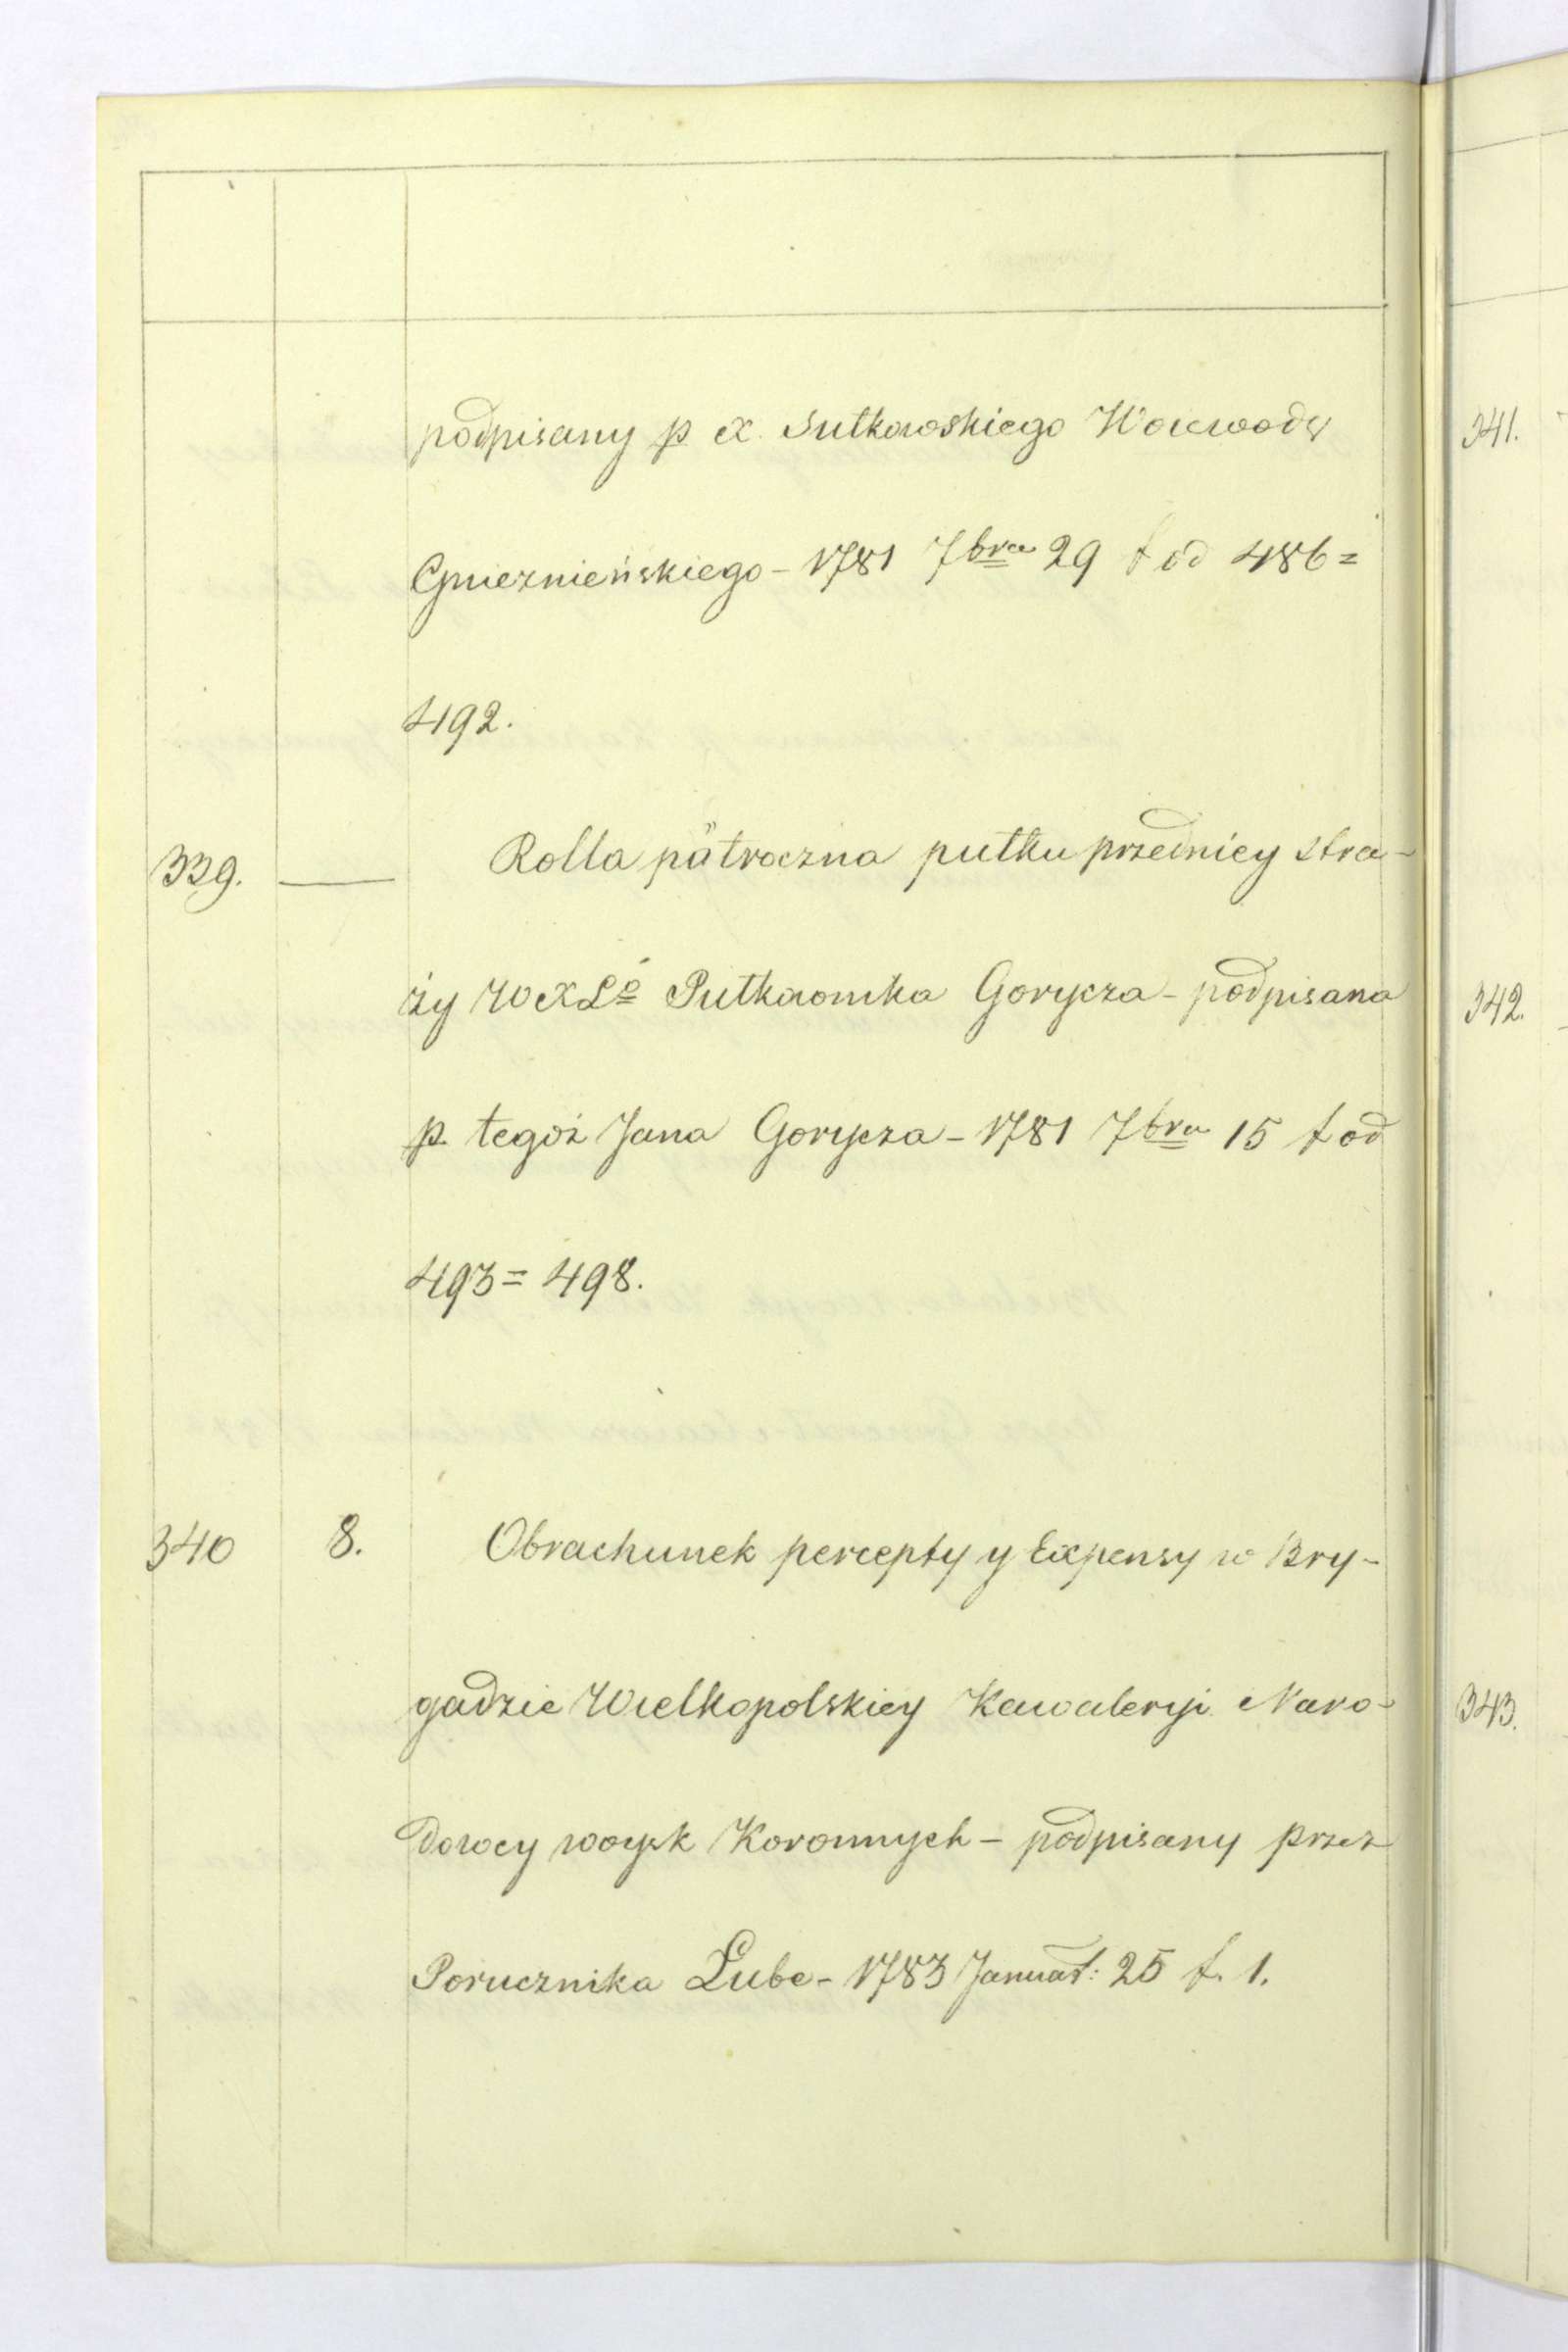 podpisany p X. Sułkowskiego Woiewodę
Gnieznieńskiego - 1781 7bra 29 f od 486 =
492.
339. — Rolla pułroczna pułku przedniey stra-
ży W X Lo Pułkownika Gorycza - podpisana
p. tegoż Jana Gorycza - 1781 7bra 15 f od
493 = 498.
340 8. Obrachunek percepty y Expensy w Bry-
gadzie Wielkopolskiey Kawaleryi Naro-
dowey woysk Koronnych - podpisany przez
Porucznika Lube - 1783 Januar: 25 f. 1.
341.
342.
343.